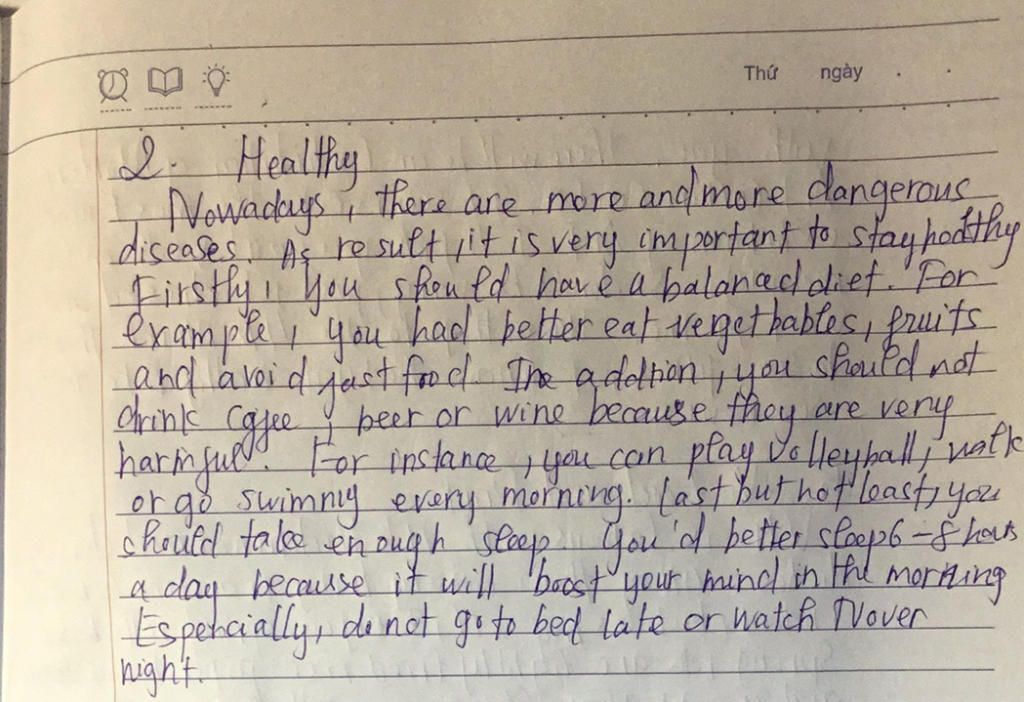 Thứ ngày . .
2. Healthy
Nowadays, there are more and more dangerous
diseases. As result, it is very important to stay heathy
Firstly, you should have a balanced diet. For
example, you had better eat vegethables, fruits
and avoid fast food. The addtion, you should not
drink coffee, beer or wine because they are very
harmful. For instance, you can play volleyball, walk
or go swimmy every morning. Last but not least, you
should take enough sleep. You'd better sleep 6-8 hours
a day because it will boost your mind in the morning
Espencially, do not go to bed late or watch TV over
night.